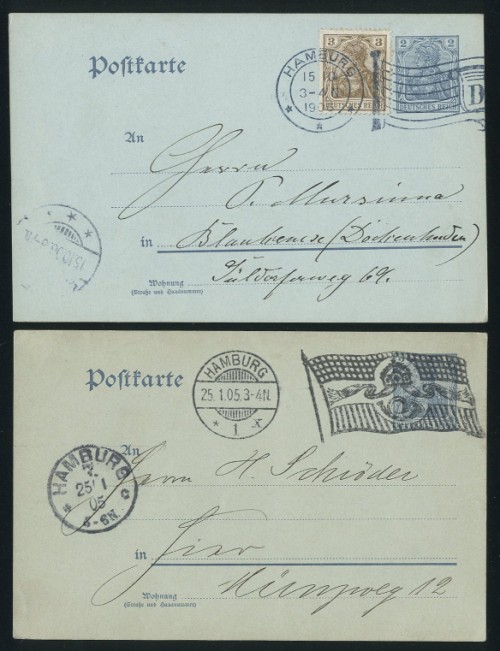 Postkarte
HAMBURG
15.10
3-4
3 3
DEUTSCHES REICH
2 2
DEUTSCHES REICH
D
An
Herrn
in Blankenese (Dockenhuden)
Wohnung
(Straße und Hausnummer)
Postkarte
HAMBURG
25.1.05.3-4N.
* 1 x
An
HAMBURG
25 1
05
5-6N.
Herrn H. Schröder
in Hier
12
Wohnung
(Straße und Hausnummer)